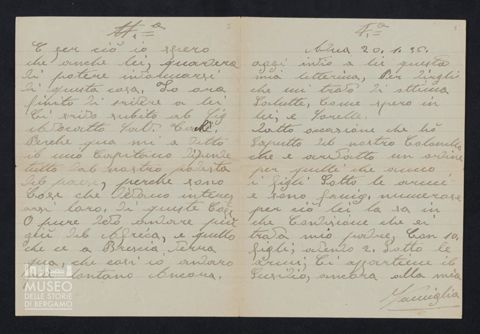 II.a
E per ciò io spero
che anche lei, guarderà
di potere informarsi
di questa cosa. Io ora
finito di scrivere a lei
Ci scrivo subito al Sig
Avvocato
Perche qua mi a detto
il mio Capitano dipende
tutto dal nostro podestà
del paese, perche sono
Cose che devono interes
arsi loro, di queste Cose
O pure devo andare più
giù del Africa, e quello
che ce a Brescia,
qua, che così io andarò
più lontano Ancora.
I.a
Adua 20. 1. 36.
oggi invio a lei questa
mia letterina, Per dirgli
che mi trovo di ottima
Salute, Come spero in
lei, e Sorella.
Datto occasione che hò
saputto dal nostro Colonello
che e arrivatto un ordine
per quelle che anno
i figli Sotto le armi
e sono famig. numerose
per ciò lei la sa in
che Condisione che si
trova mio padre, Con 10.
figli, avendo 2. Sotto le
armi, Ci appartiene il
Susidio, ancora alla mia
Famiglia
MUSEO
DELLE STORIE
DI BERGAMO